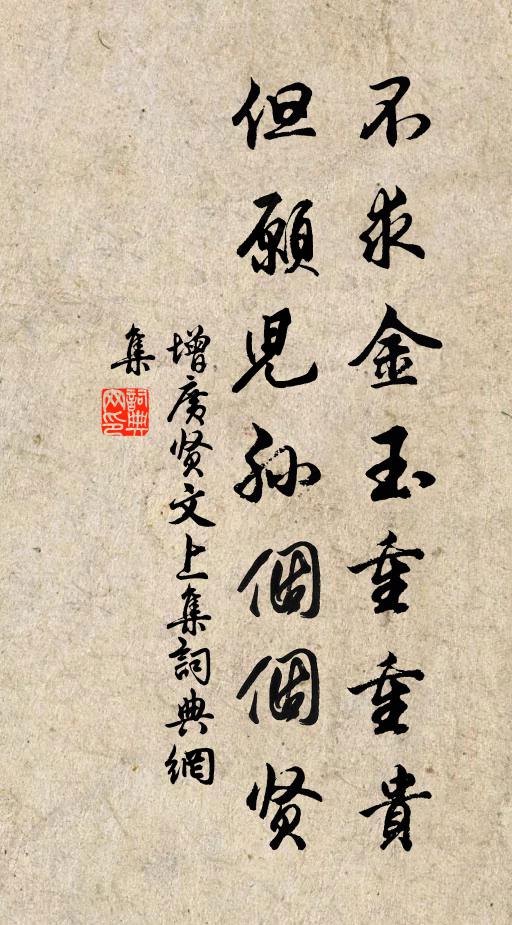 不求金玉重重貴
但願兒孙個個贤
增廣贤文上集詞典網
集
詞典
网印